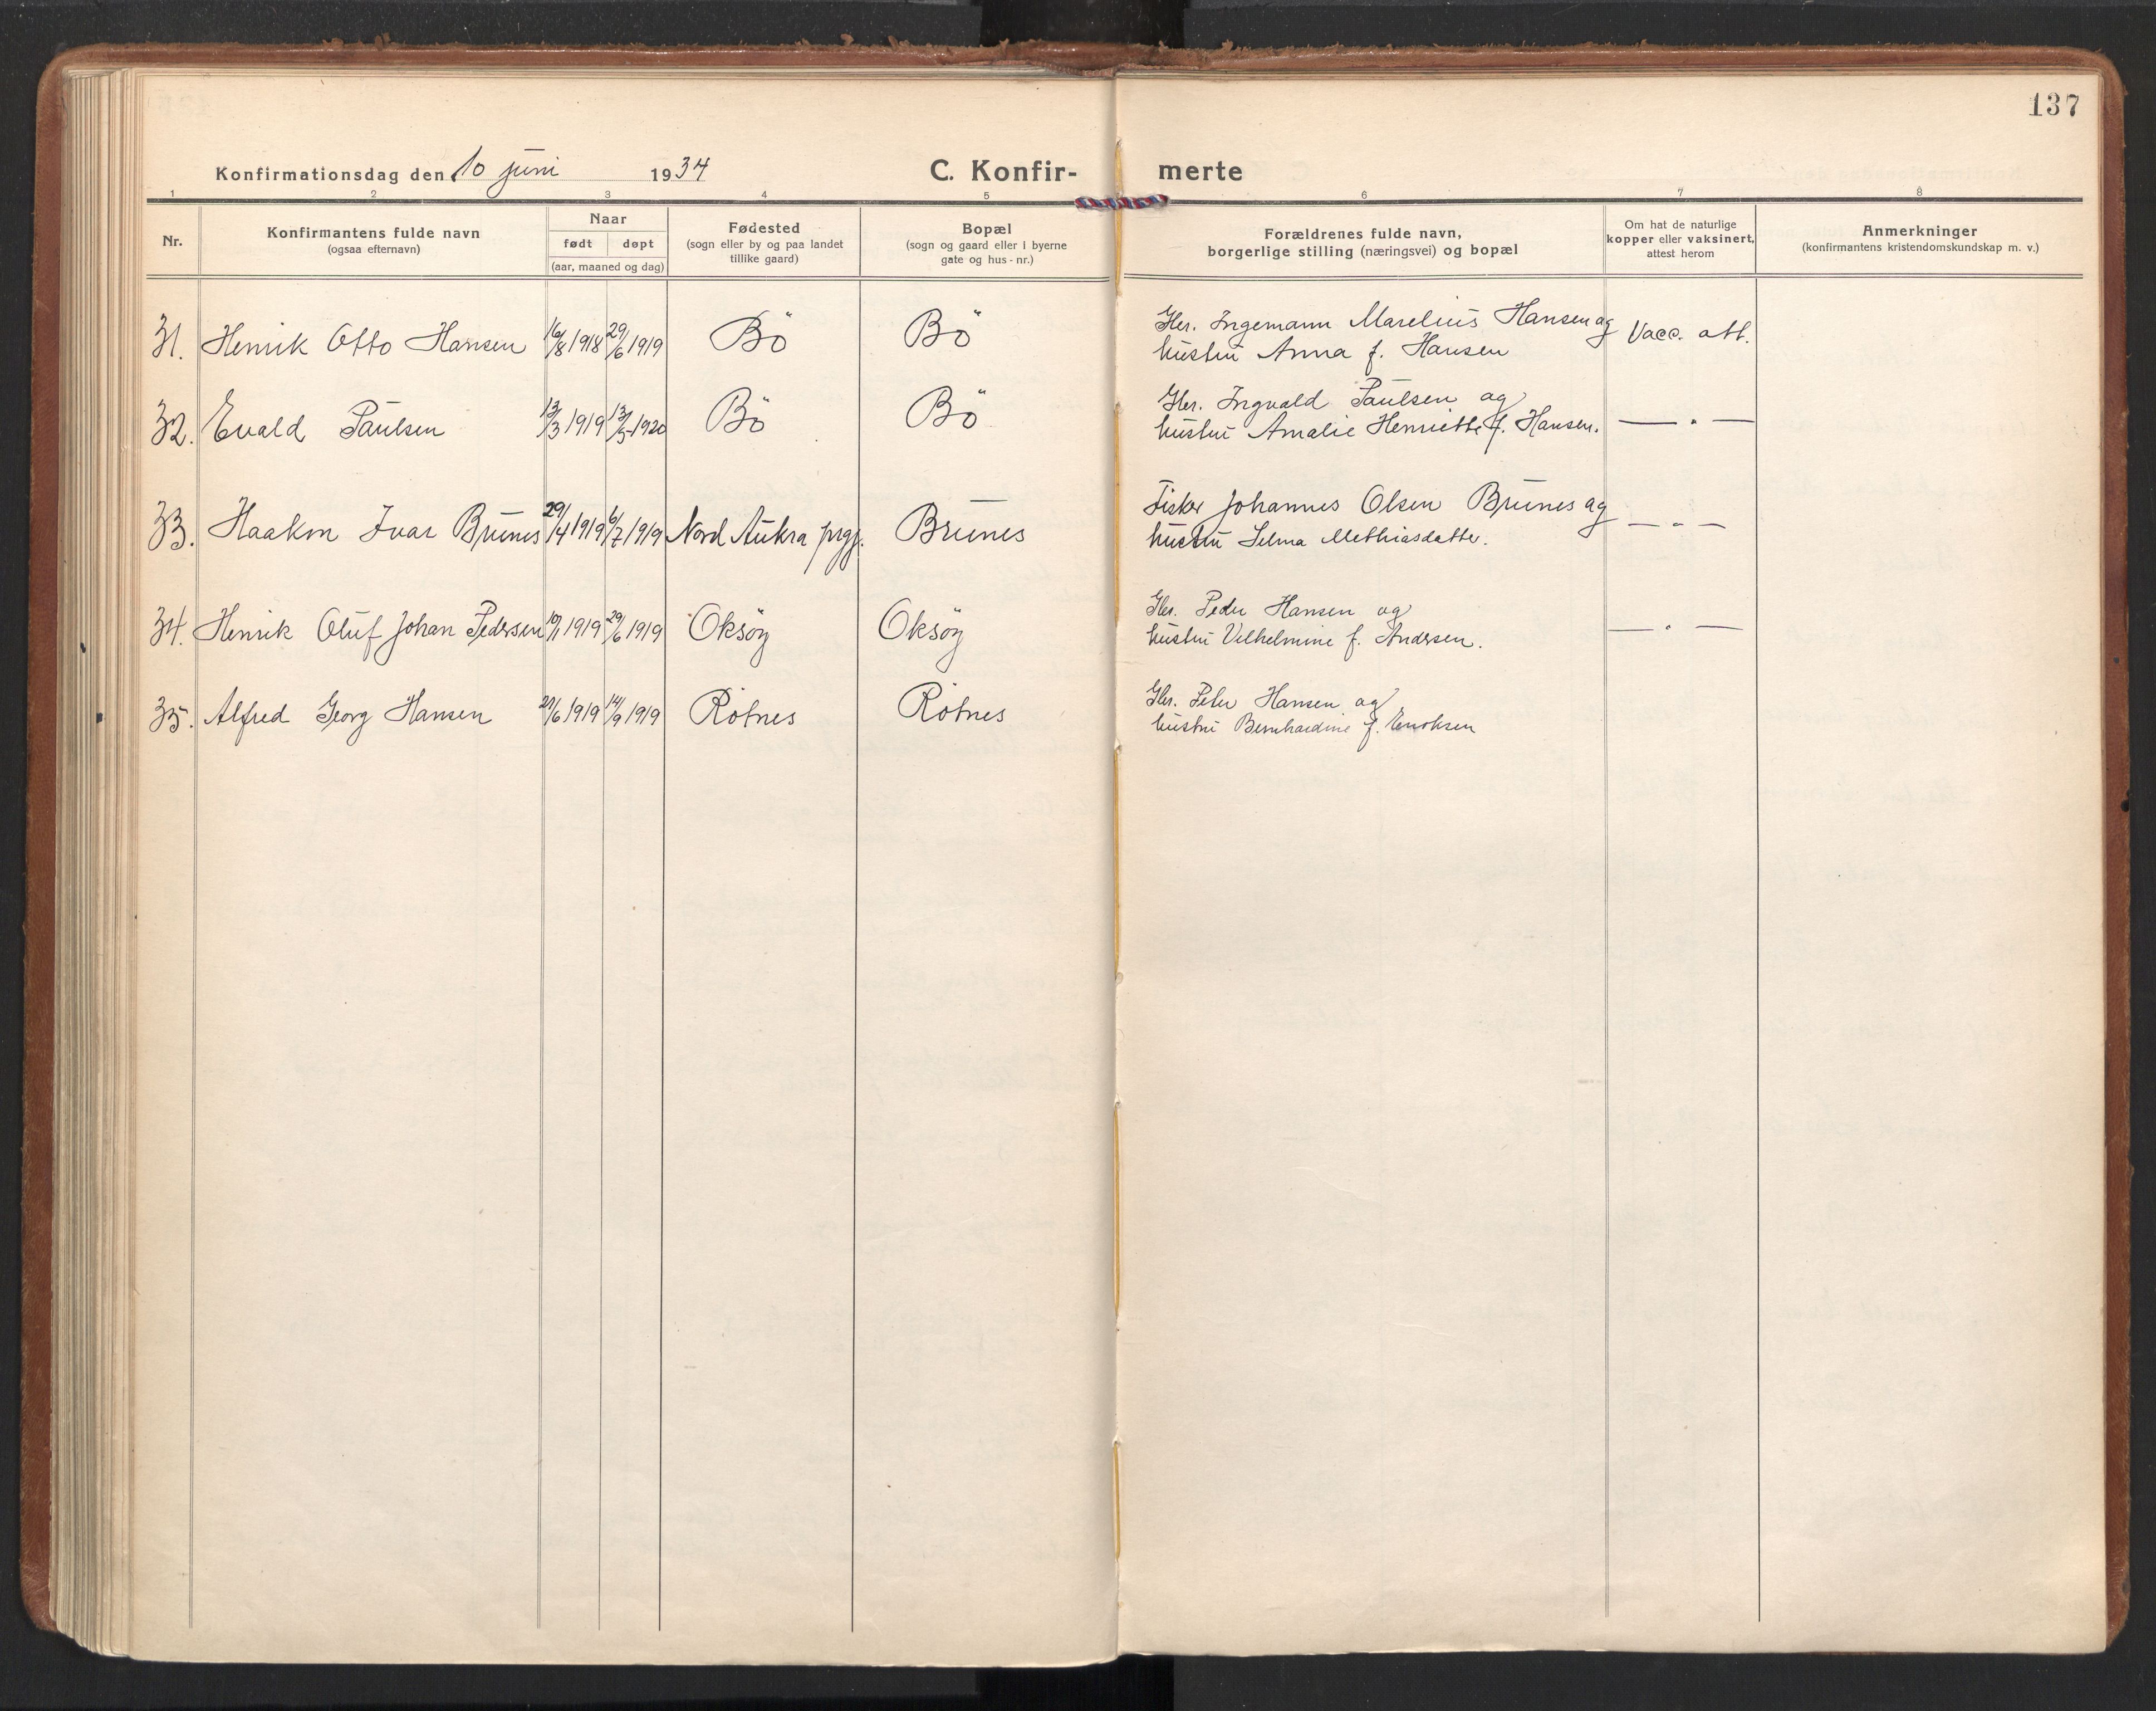 137
Konfirmationsdag den 10 juni 1934
C. Konfir- merte
1 2 3 4 5 6 7 8
Nr.
Konfirmantens fulde navn
(ogsaa efternavn)
Naar
født døpt
(aar, maaned og dag)
Fødested
(sogn eller by og paa landet
tillike gaard)
Bopæl
(sogn og gaard eller i byerne
gate og hus-nr.)
Forældrenes fulde navn,
borgerlige stilling (næringsvei) og bopæl
Om hat de naturlige
kopper eller vaksinert,
attest herom
Anmerkninger
(konfirmantens kristendomskundskap m. v.)
31. Henrik Otto Hansen 16/8 1918 29/6 1919 Bö Bö
Gbr. Ingemann Marelius Hansen og
hustru Anna f. Hansen
Vacc. att.
32. Evald Paulsen 13/3 1919 13/5 1920 Bö Bö
Gbr. Ingvald Paulsen og
hustru Amalie Henriette f. Hansen. — " —
33. Haakon Ivar Brunes 29/4 1919 6/7 1919 Nord Aukra prgj. Brunes
Fisker Johannes Olsen Brunes og
hustru Selma Methiasdatter. — " —
34. Henrik Oluf Johan Pedersen 10/1 1919 29/6 1919 Oksöy Oksöy
Gbr. Peder Hansen og
hustru Vilhelmine f. Andersen. — " —
35. Alfred Georg Hansen 21/6 1919 14/9 1919 Rötnes Rötnes
Gbr. Peter Hansen og
hustru Bernhardine f. Enoksen